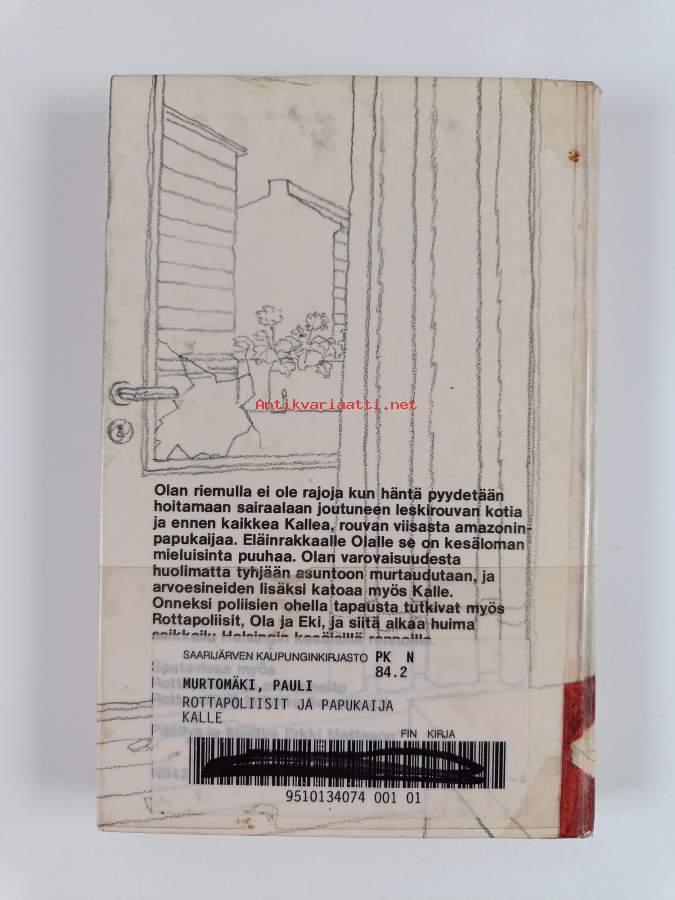 Antikvariaatti.net
Olan riemulla ei ole rajoja kun häntä pyydetään
hoitamaan sairaalaan joutuneen leskirouvan kotia
ja ennen kaikkea Kallea, rouvan viisasta amazonin-
papukaijaa. Eläinrakkaalle Olalle se on kesäloman
mieluisinta puuhaa. Olan varovaisuudesta
huolimatta tyhjään asuntoon murtaudutaan, ja
arvoesineiden lisäksi katoaa myös Kalle.
Onneksi poliisien ohella tapausta tutkivat myös
Rottapoliisit, Ola ja Eki, ja siitä alkaa huima
seikkailu Helsingin
SAARIJÄRVEN KAUPUNGINKIRJASTO PK N
84.2
Saatavissa myös
MURTOMÄKI, PAULI
ROTTAPOLIISIT JA PAPUKAIJA
KALLE
FIN KIRJA
9510134074 001 01